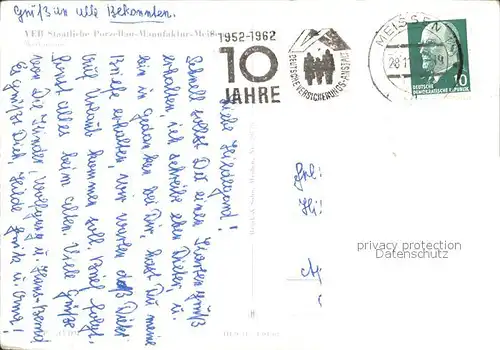 Grüß an alle Bekannten.
VEB Staatliche Porzellan-Manufaktur Meißen
1952-1962
10
JAHRE
DEUTSCHE VERSICHERUNGS-ANSTALT
MEISSEN
10
DEUTSCHE
DEMOKRATISCHE REPUBLIK
Liebe Hildegard!
Schnell sollst Du einen Kartengruß
erhalten, ich schreibe eben Dieter u.
bin in Gedanken bei Dir, hast Du meine
Briefe erhalten, wir warten daß Dieter
mal Urlaub kommen soll. Brief folgt.
Sonst alles beim alten. Viele Grüße
von die Kinder, Wolfgang u. Hans-Bernd
Es grüßt Dich Hilde, Fritz u. Oma!
privacy protection
Datenschutz